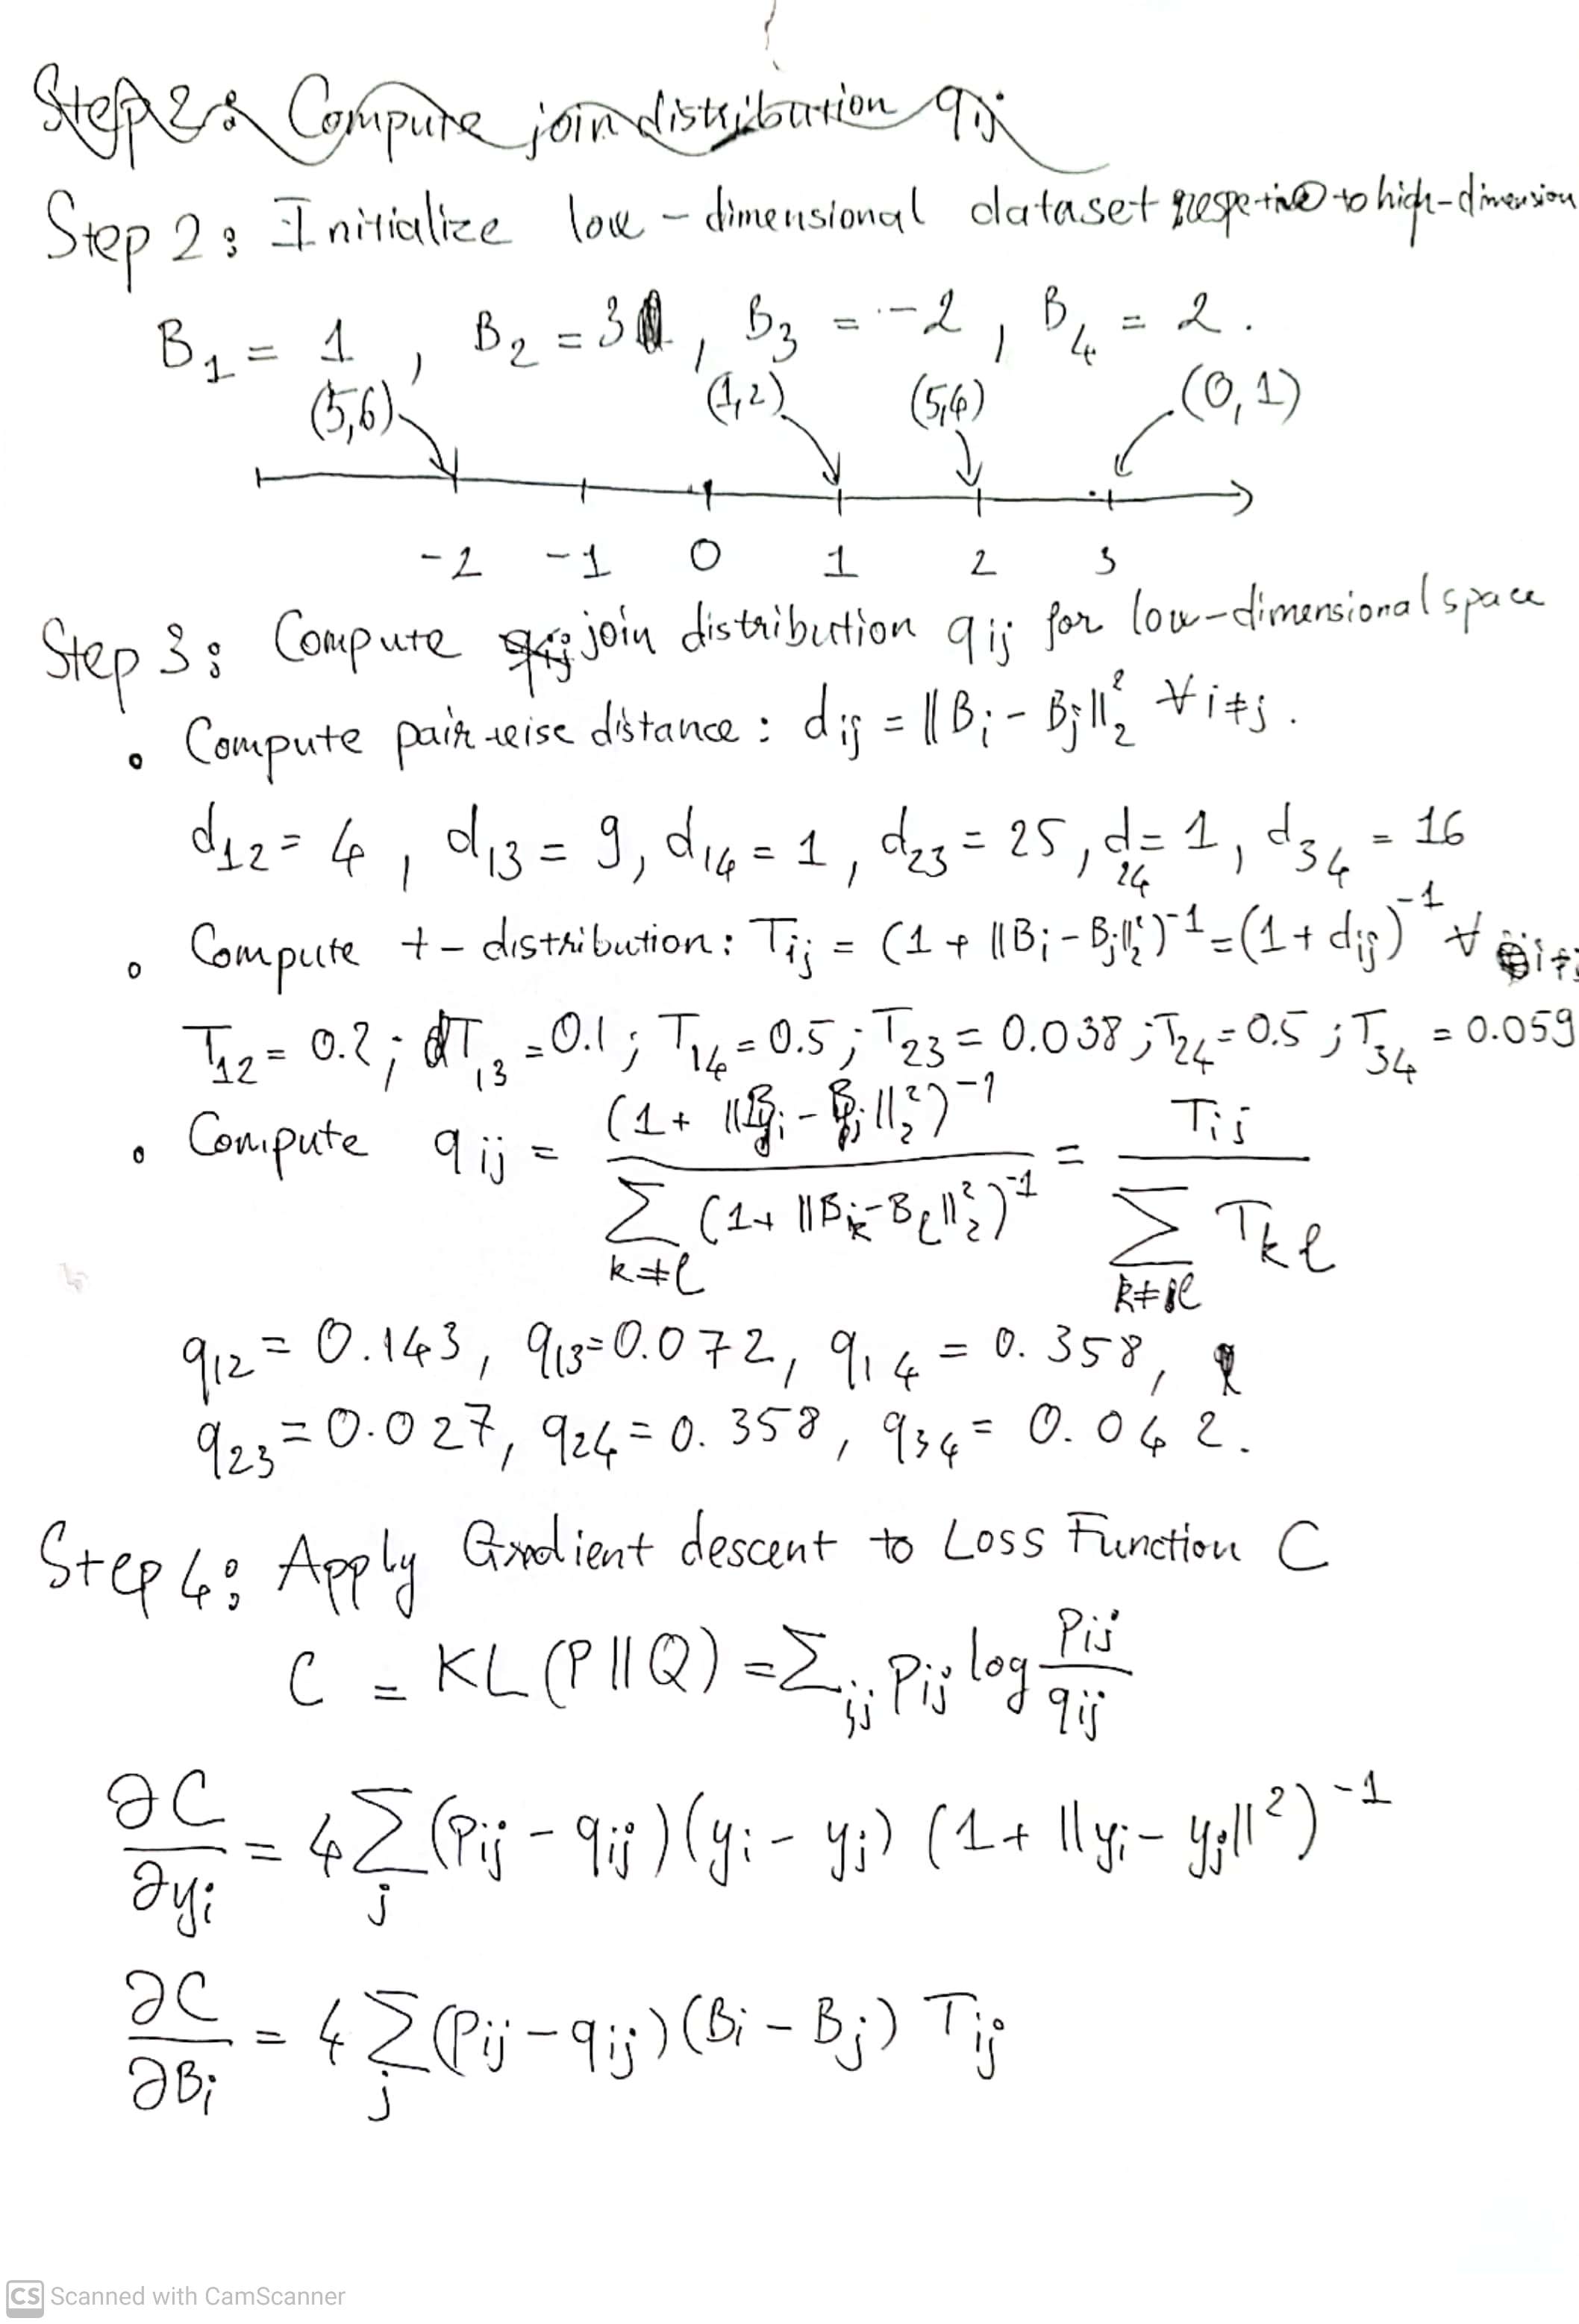 Step 2: Compute join distribution qij
Step 2: Initialize low-dimensional dataset respetive to high-dimension
B1 = 1, B2 = 3, B3 = -2, B4 = 2.
(5,6) (1,2) (5,4) (0,1)
-2 -1 0 1 2 3
Step 3: Compute join distribution qij for low-dimensional space
• Compute pair-wise distance: dij = ||Bi - Bj||₂² ∀ i≠j.
d12 = 4, d13 = 9, d14 = 1, d23 = 25, d24 = 1, d34 = 16
• Compute t-distribution: Tij = (1 + ||Bi - Bj||₂²)⁻¹ = (1 + dij)⁻¹ ∀ i≠j
T12 = 0.2; T13 = 0.1; T14 = 0.5; T23 = 0.038; T24 = 0.5; T34 = 0.059
• Compute qij = (1 + ||Bi - Bj||₂²)⁻¹ / Σk≠l (1 + ||Bk - Bl||₂²)⁻¹ = Tij / Σk≠l Tkl
q12 = 0.143, q13 = 0.072, q14 = 0.358,
q23 = 0.027, q24 = 0.358, q34 = 0.042.
Step 4: Apply Gradient descent to Loss Function C
C = KL(P||Q) = Σij Pij log Pij / qij
∂C/∂yi = 4 Σj (Pij - qij)(yi - yj)(1 + ||yi - yj||²)⁻¹
∂C/∂Bi = 4 Σj (Pij - qij)(Bi - Bj) Tij
CS Scanned with CamScanner